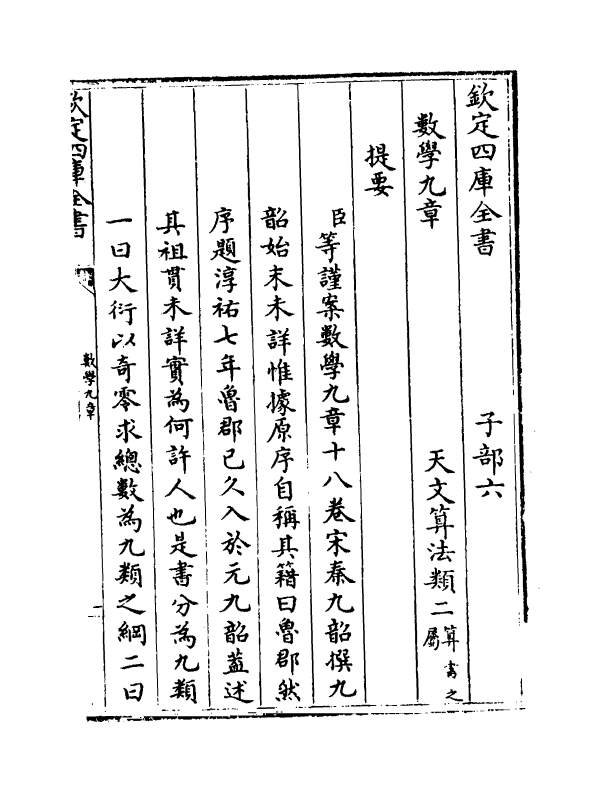 欽定四庫全書 子部六
數學九章 天文算法類二算書之屬
提要
臣等謹案數學九章十八卷宋秦九韶撰九
韶始末未詳惟據原序自稱其籍曰魯郡然
序題淳祐七年魯郡已久入於元九韶蓋述
其祖貫未詳實為何許人也是書分為九類
一曰大衍以奇零求總數為九類之綱二曰
欽定四庫全書 數學九章 一